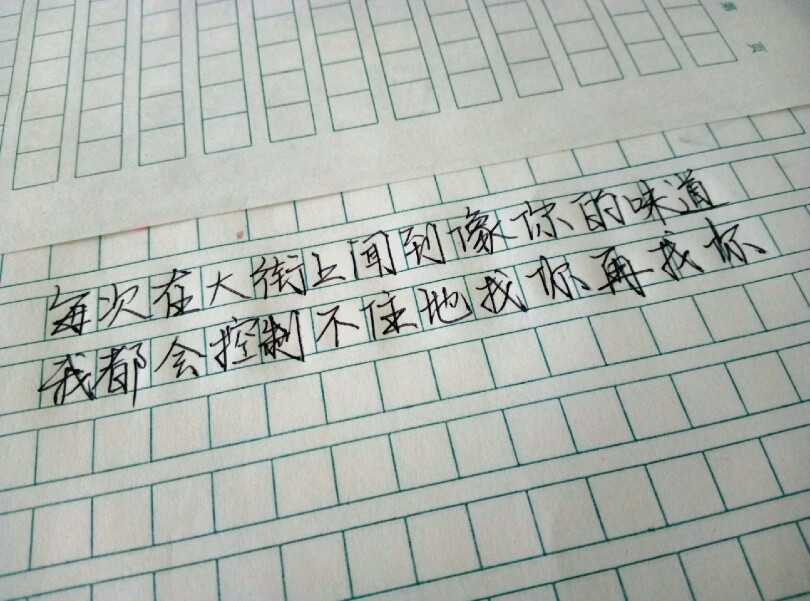 第 页
每次在大街上闻到像你的味道
我都会控制不住地找你再找你